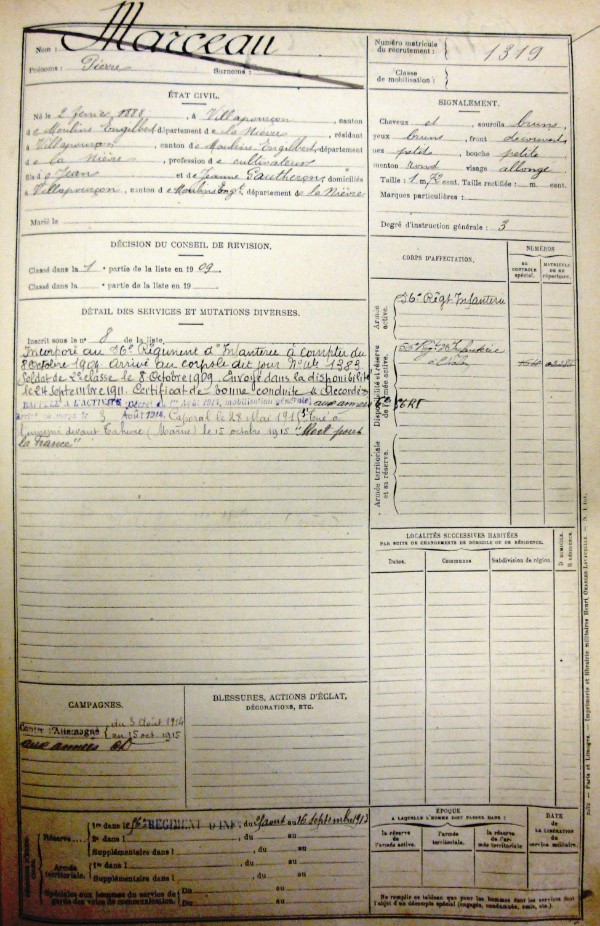 Nom : Marceau
Prénoms : Pierre Surnoms :
Numéro matricule du recrutement : 1319
Classe de mobilisation :
ÉTAT CIVIL.
Né le 2 février 1888, à Villapourçon, canton
de Moulins Engilbert, département de la Nièvre, résidant
à Villapourçon, canton de Moulins Engilbert, département
de la Nièvre, profession de cultivateur
fils de Jean et de Jeanne Pautheron, domiciliés
à Villapourçon, canton de Moulins Engt, département de la Nièvre
Marié le
SIGNALEMENT.
Cheveux et sourcils bruns,
yeux bruns, front découvert,
nez petit, bouche petite
menton rond visage allongé
Taille : 1 m. cent. Taille rectifiée : m. cent.
Marques particulières :
Degré d'instruction générale : 3
DÉCISION DU CONSEIL DE REVISION.
Classé dans la 1e partie de la liste en 1909.
Classé dans la e partie de la liste en 19
DÉTAIL DES SERVICES ET MUTATIONS DIVERSES.
Inscrit sous le no 8 de la liste
Incorporé au 36e Régiment d'Infanterie à compter du
8 Octobre 1909 arrivé au corps le dit jour No Mle 1383
Soldat de 2e classe le 8 Octobre 1909. Envoyé dans la disponibilité
le 24 Septembre 1911. Certificat de bonne conduite "Accordé"
RAPPELÉ A L'ACTIVITÉ aux armées
3 Août 1914. Caporal le 28 Mai 1915. Tué à
l'ennemi devant Tahure (Marne) le 15 octobre 1915 "Mort pour
la France"
CORPS D'AFFECTATION.
NUMÉROS
AU CONTRÔLE spécial.
MATRICULE OU AU répertoire.
Armée active.
36e Régt Infanterie
Disponibilité et réserve de l'armée active.
Armée territoriale et sa réserve.
LOCALITÉS SUCCESSIVES HABITÉES
PAR SUITE DE CHANGEMENTS DE DOMICILE OU DE RÉSIDENCE.
Dates. Communes. Subdivision de région. D DOMICILE. R RÉSIDENCE.
CAMPAGNES.
Contre l'Allemagne du 3 Août 1914
au 15 oct. 1915
aux armées
BLESSURES, ACTIONS D'ÉCLAT,
DÉCORATIONS, ETC.
Réserve
1re dans le 56e RÉGIMENT D'INFie du août au 16 septembre 1913
2e dans le , du au
Supplémentaire dans l , du au
Armée territoriale.
1re dans l , du au
Supplémentaire dans l , du au
Spéciales aux hommes du service de garde des voies de communication.
Du au
Du au
ÉPOQUE
A LAQUELLE L'HOMME DOIT PASSER DANS :
la réserve de l'armée active.
l'armée territoriale.
la réserve de l'armée territoriale
DATE
DE LA LIBÉRATION du service militaire.
Ne remplir ce tableau que pour les hommes dont les services font
l'objet d'un décompte spécial (engagés, condamnés, omis, etc.).
Paris et Limoges. — Imprimerie et librairie militaires Henri CHARLES-LAVAUZELLE.